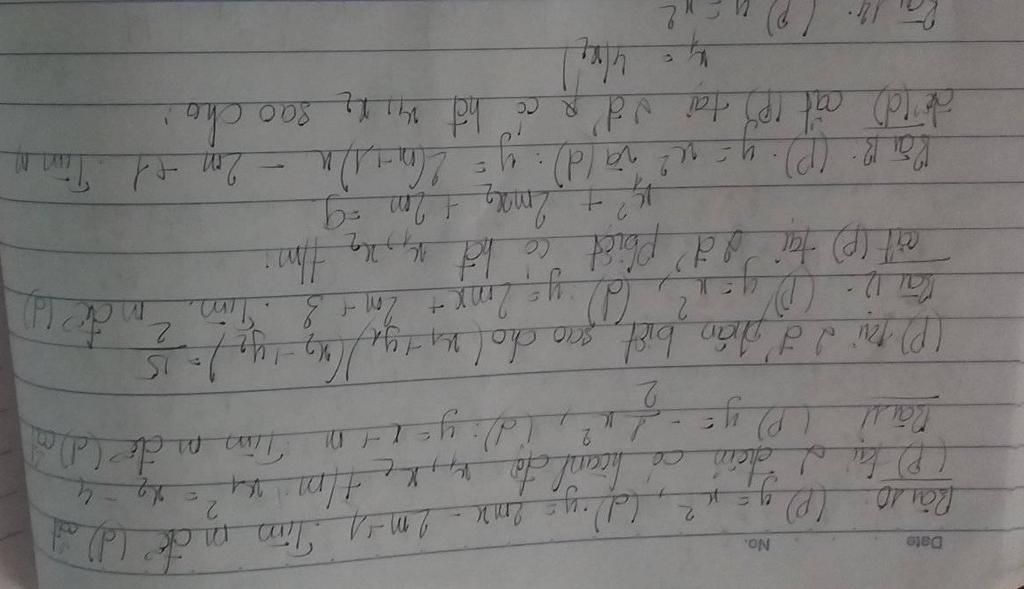 Date No.
Bài 10: (P) y = x², (d): y = 2mx - 2m + 1. Tìm m để (d) cắt
(P) tại 2 điểm có hoành độ x₁, x₂ t/m: x₁² = x₂ - 4
Bài 11 (P) y = -1/2 x², (d): y = x + m Tìm m để (d) cắt
(P) tại 2 đ' phân biệt sao cho (x₁ + y₁)(x₂ + y₂) = 15/2
Bài 12. (P) y = x², (d) y = 2mx + 2m + 3. Tìm m để (d)
cắt (P) tại 2 đ' pbiệt có hđ x₁, x₂ t/m:
x₁² + 2mx₂ + 2m = 9
Bài 13. (P). y = x² và (d): y = 2(m+1)x - 2m + 1 Tìm m
để (d) cắt (P) tại 2 đ' có hđ x₁, x₂ sao cho:
x₁ = 4|x₂|
Bài 14. (P) y = x²